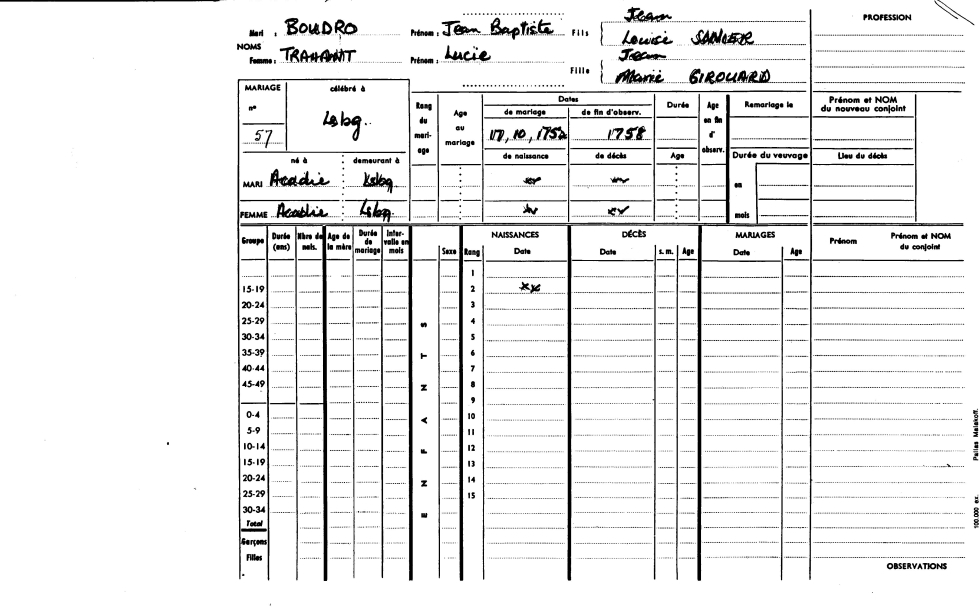 Jean
Mari : BOUDRO Prénom : Jean Baptiste Fils Louise
NOMS Jean
Femme : TRAHANT Prénom : Lucie
Fille Marie GIROUARD
PROFESSION
MARIAGE célébré à
n° Lsbg.
57
né à demeurant à
MARI Acadie Lsbg
FEMME Acadie Lsbg.
Rang du mari-age
Age au mariage
Dates
de mariage de fin d'observ.
17, 10, 1752 1758
de naissance de décès
xx xx
xx xx
Durée
Age
Age en fin d' observ.
Remariage le
Durée du veuvage
en
mois
Prénom et NOM
du nouveau conjoint
Lieu du décès
NAISSANCES DÉCÈS MARIAGES
Groupe Durée (ans) Nbre de nais. Age de la mère Durée de mariage Inter-valle en mois Sexe Rang Date Date s. m. Age Date Age Prénom Prénom et NOM du conjoint
1
15-19 2 xx
20-24 3
25-29 4
30-34 5
35-39 6
40-44 7
45-49 8
9
0-4 10
5-9 11
10-14 12
15-19 13
20-24 14
25-29 15
30-34
Total
Garçons
Filles
ENFANTS
OBSERVATIONS
100.000 ex. Pallas Malakoff.